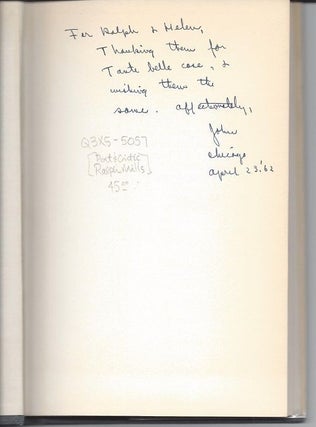 For Ralph & Helen,
Thanking them for
Tante belle cose, &
wishing them the
same. affectionately,
John
Chicago
April 23, '62
Q3X5-5057
[Poet & Critic
Ralph Mills]
45.00